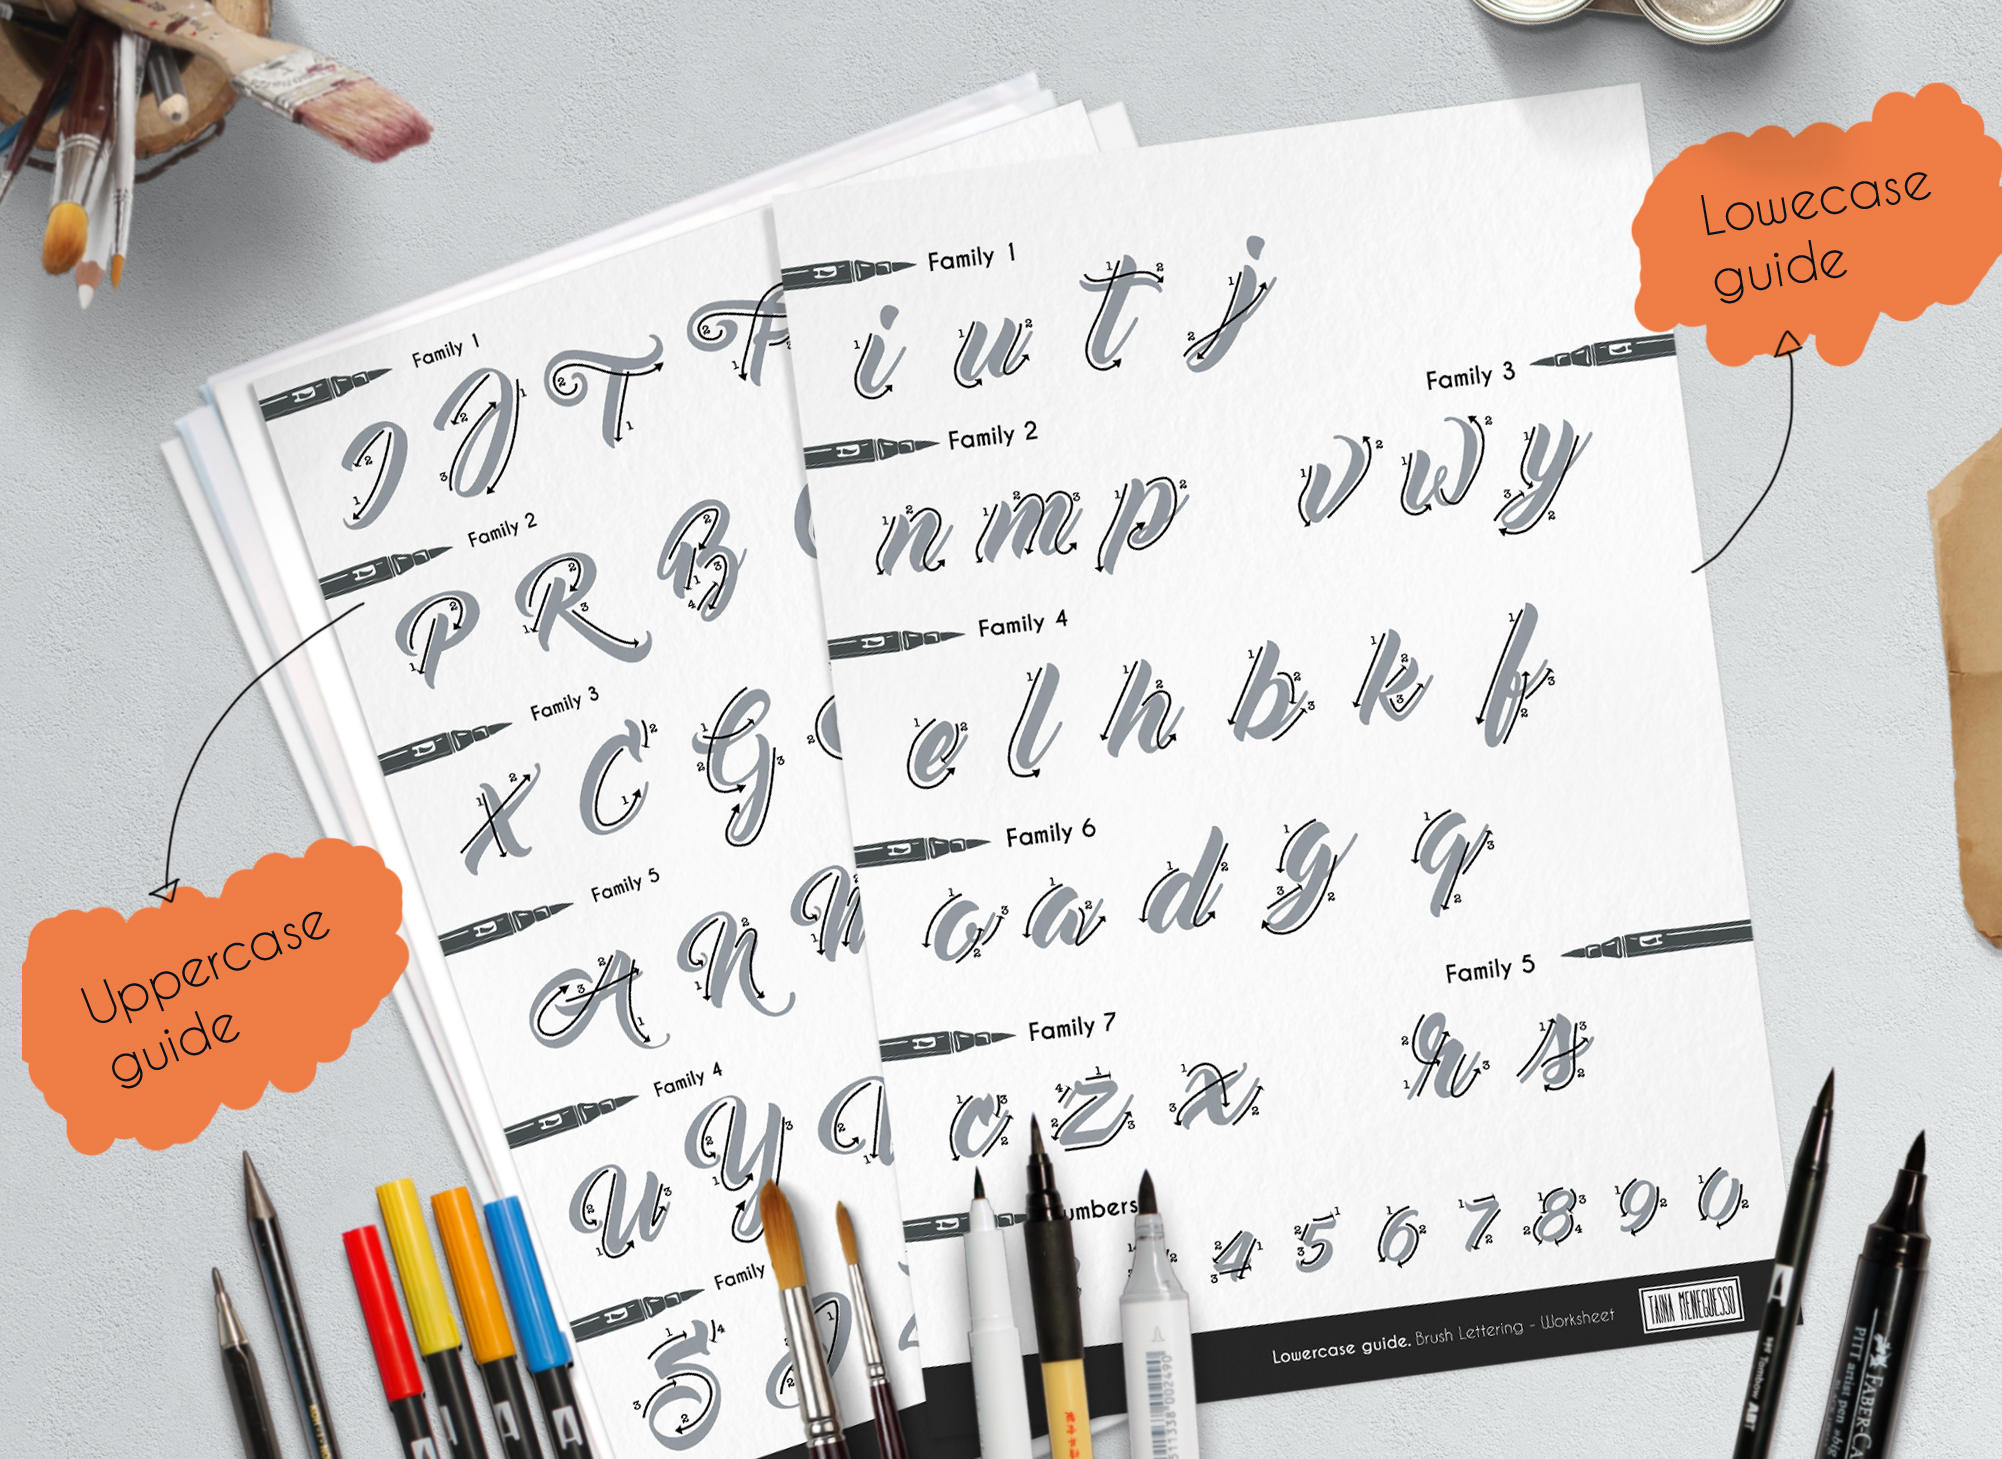 Lowecase
guide
Uppercase
guide
Family 1
I J T F
Family 2
P R B
Family 3
X C G
Family 5
A N
Family 4
U Y
Family
S
Family 1
i u t j
Family 2
n m p
Family 3
v w y
Family 4
e l h b k f
Family 6
o a d g q
Family 5
r s
Family 7
c z x
umbers
4 5 6 7 8 9 0
Lowercase guide. Brush Lettering - Worksheet
TAINA MENEGUESSO
Tombow ABT
FABER-CA
PITT artist pen
511338 002490